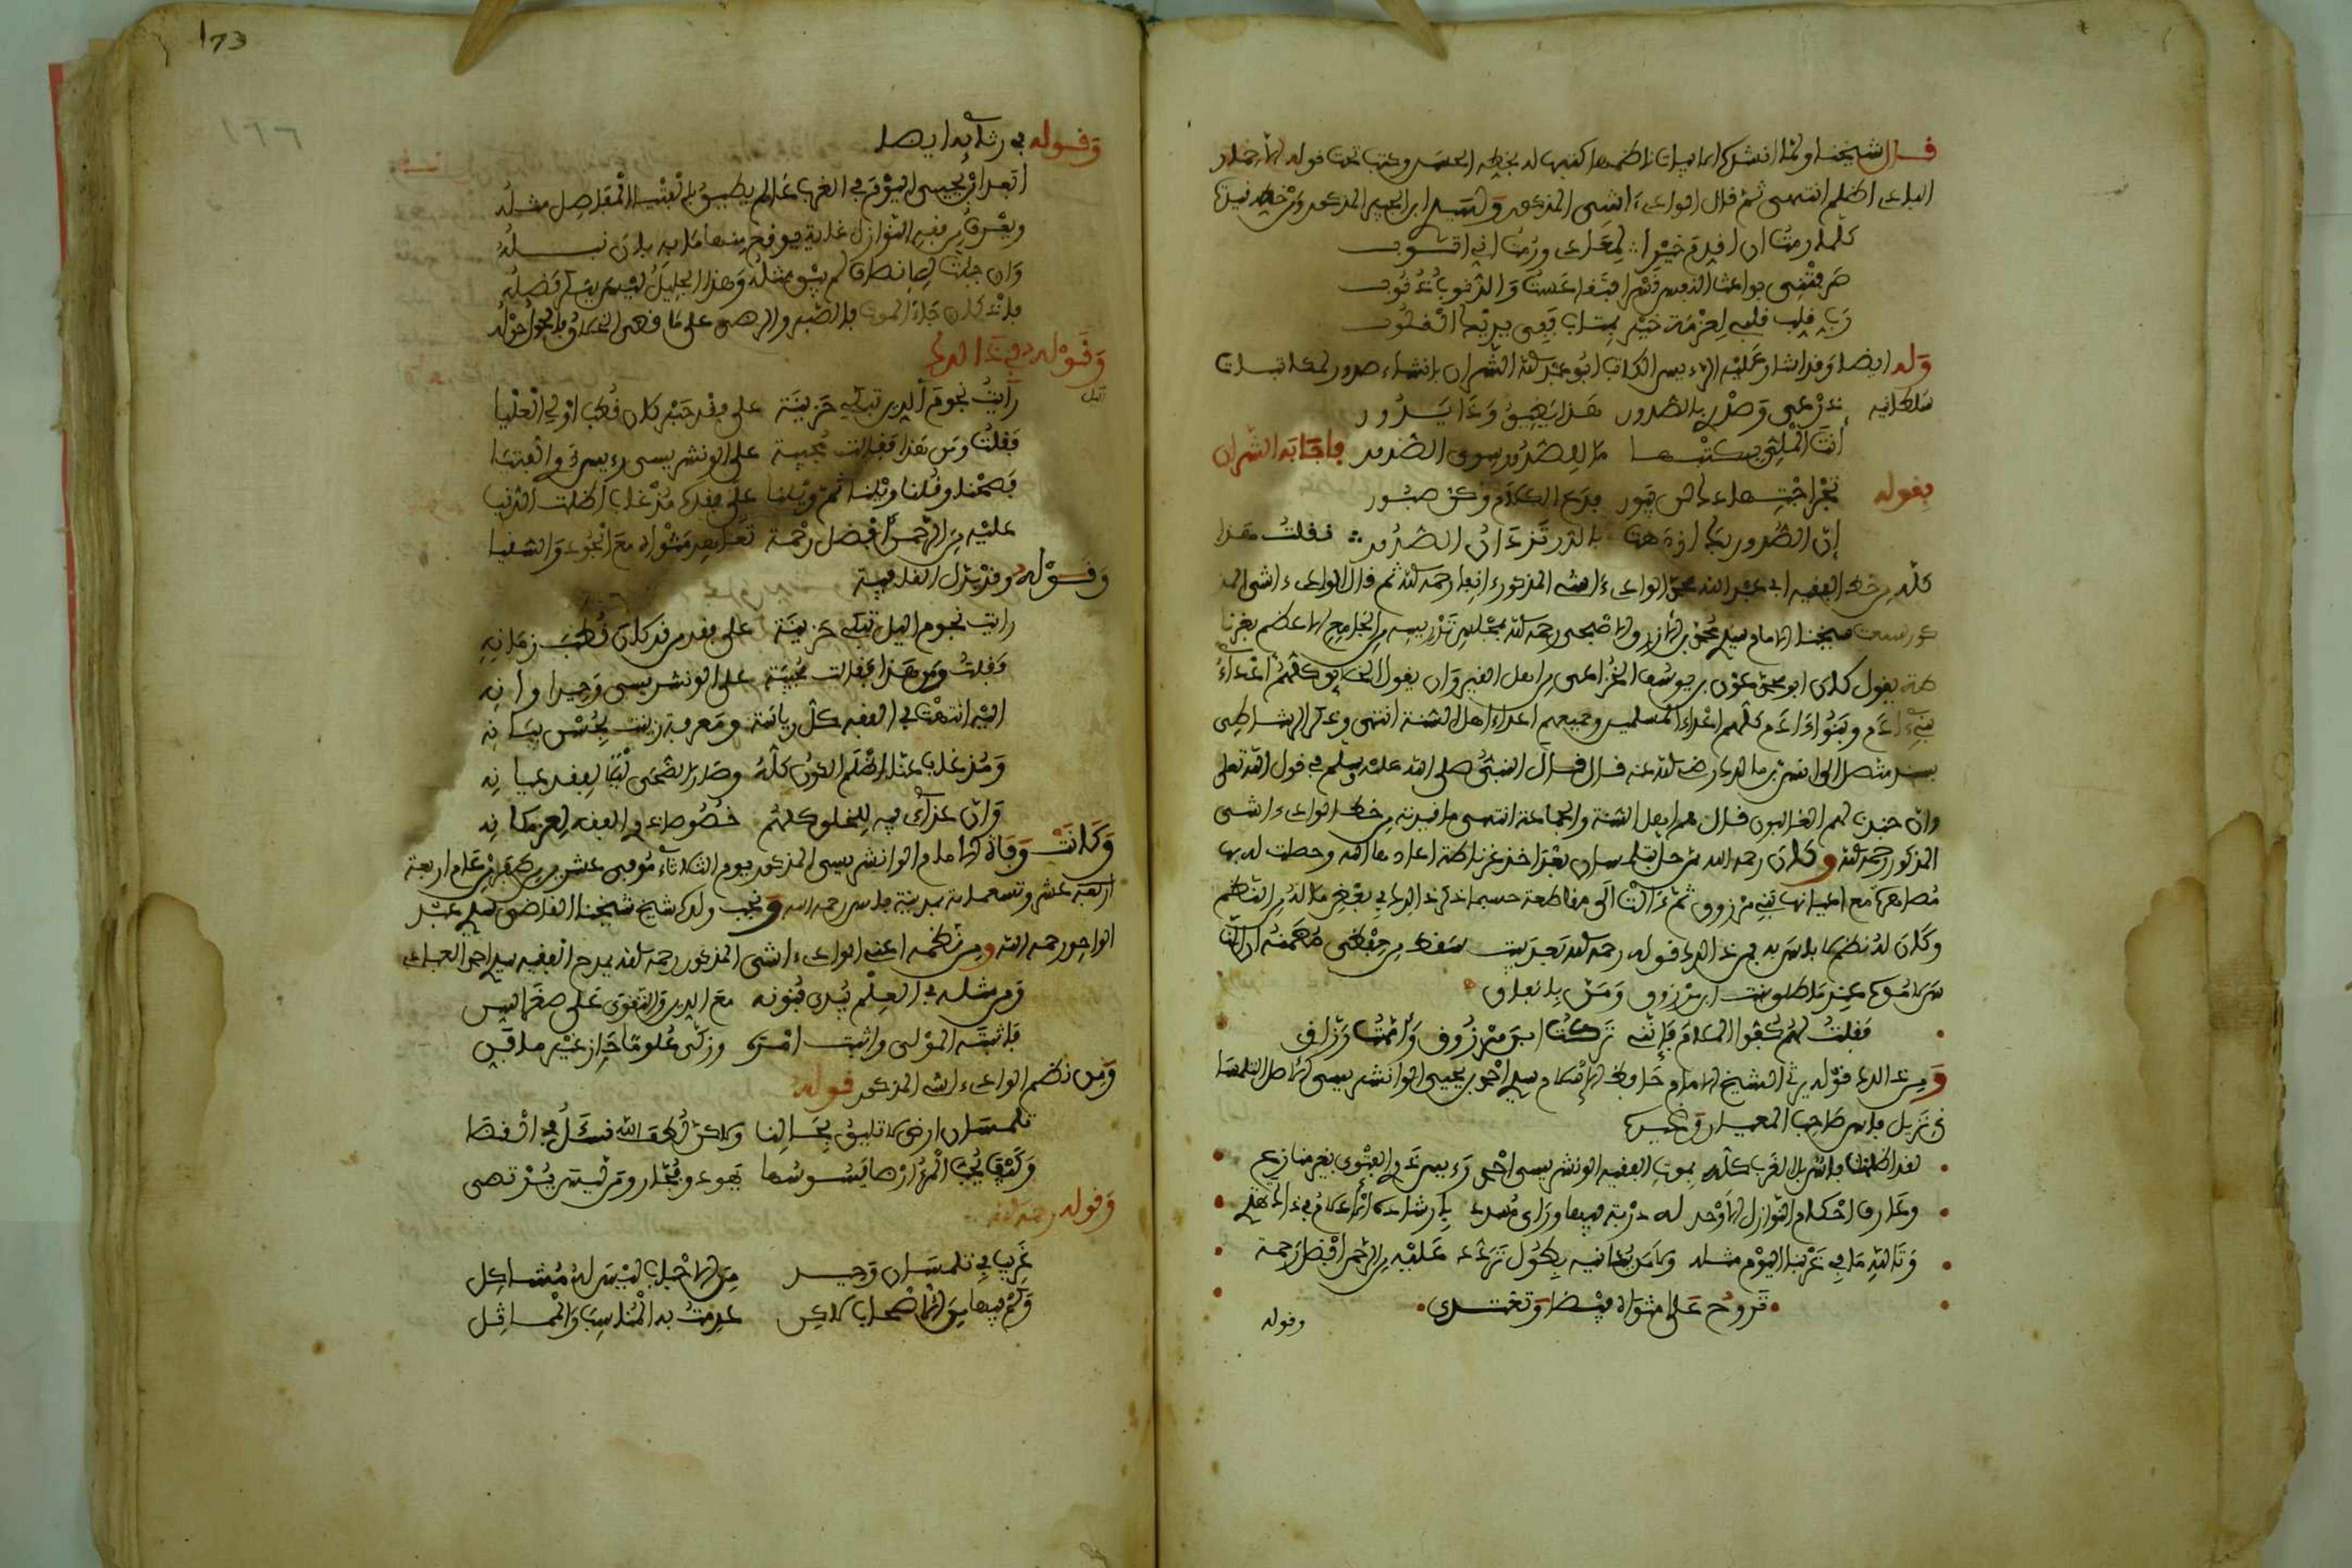 قال شيخنا ولما انشدك الابيات ناظمها كتبها له بخطه الحسن وكتب تحت قوله
البادي اظلم انتهى ثم قال الوادي ءاشي المذكور
كلما رمت ان اقدم خيرا لمعادي ورمت اني اتوب
صرفتني بواعث النفس قسرا فتقاعست والذنوب ذنوب
رب قلب قلبي لعزمة خير لمتاب ففي يديك القلوب
وله ايضا وقد اشار عليه الرءيس الكاتب ابو عبد الله الشران بانشاء صدور لمكاتبات
سلطانية
انت الملقى بكتبها ما للصدور سوى الصدور فاجابه الشران
بقوله
ان الصدور بك ازدهت بالدر تزدان الصدور فقلت هذا
كله من خط الفقيه ابي عبد الله محمد الوادي ءاشي المذكور رحمه الله ثم قال الوادي ءاشي
شيخنا الامام سيدي محمد بن الازرق الاصبحي رحمه الله بمجلس تدريسه من الجامع الاعظم بغرنا
طة يقول كان ابو محمد عون بن يوسف الخزاعي من اهل القيروان يقول الخلق كلهم اعداء
بني ءادم وبنو ءادم كلهم اعداء المسلمين وجميعهم اعداء اهل السنة انتهى وذكر الشاطبي
بسند متصل الى انس بن مالك رضي الله عنه قال قال النبي صلى الله عليه وسلم في قول الله تعلى
وان جندنا لهم الغالبون قال هم اهل السنة والجماعة انتهى ما قيدته من خط الوادي ءاشي
المذكور رحمه الله وكان رحمه الله تلمسان بعد اخذ غرناطة اعادها الله وحصلت له بها
مصاهرة مع اعيانها بني مرزوق ثم ءالت الى مقاطعة حسبما ذكر ذلك في بعض ماله من النظم
وكان له نظم لا باس به فمن ذلك قوله رحمه الله بعد بيت سقط من حفظي
ابن مرزوق ومن بلا تعلق
فقلت لهم كفوا الملام فانني تركت ابن مرزوق وأممت رزاقي
ومن ذلك قوله يرثي الشيخ الامام حافظ الاسلام سيدي احمد بن يحيى الوانشريسي الاصل التلمسا
ني نزيل فاس صاحب المعيار وغيره
لقد اظلمت فاس بل الغرب كله بموت الفقيه الونشريسي احمد رءيس ذوي الفتوى بغير منازع
وعارف احكام النوازل الاوحد له دربة فيها وراي مسدد بارشاده الاعلام في ذاك تهتدي
وتالله ما في غربنا اليوم مثله ولا من يدانيه بطول تردد عليه من الرحمن افضل رحمة
تروح على مثواه فيضا وتغتدي
وقوله
173
١٦٦
وقوله في رثائه ايضا
ابعد ابن يحيى اليوم في الغرب عالم يطبق بالفتيا المفاصل مثله
ويعرف من فقه النوازل غاية فيوضح منها ما به بان نبله
وان جئت للانصاف لم يبق مثله وهذا الجليل ليس ينكر فضله
بالصبر والرضى على ما قضى الخلاق فالحول حوله
وقوله في ذا الك
اليل
رأيت نجوم الدين تبكي حزينة على فقد حبر كان قطب اولي العليا
فقلت ومن هذا فقالت مجيبة على الونشريسي رءيس ذوي الفتيا
فصحنا وقلنا ويلنا ثم ويلنا على فقده مذ غاب اظلمت الدنيا
عليه من الرحمن افضل رحمة تعاهد مثواه مع الجود والسقيا
وقوله وقد بدل القافية
رايت نجوم اليل تبكي حزينة على فقد من قد كان قطب زمانه
فقلت ومن هذا فقالت مجيبة على الونشريسي وحيد اوانه
اليه انتهت في الفقه كل رياسة ومعرفة زينت بحسن بيانه
ومذ غاب عنا اظلم الكون كله وصار الضحى ليلا لفقد عيانه
وان عزائي فيه للخلق كلهم خصوصا ذوي الفقه لعز مكانه
وكانت وفاة الامام الوانشريسي المذكور يوم الثلاثاء موفى عشرين من صفر من عام اربعة
اربعة عشر وتسعماية بمدينة فاس رحمه الله ونجب ولده شيخ شيخنا القاضي سيدي عبد
الواحد رحمه الله ومن نظمه اعني الوادي ءاشي المذكور رحمه الله يمدح الفقيه سيدي احمد العبادي
ومن مثله في العلم يبدي فنونه مع الدين والتقوى على صغر السن
فاثبته المولى واثبت امره وزكى علوما حاز عن غير ما فن
ومن نظم الوادي ءاشي المذكور قوله
تلمسان ارض لا تليق بحالنا ولاكن لطف الله نسئل في القضا
وكيف يحب المرء ارضا يسوسها يهود وفجار ومن ليس يرتضى
وقوله رحمه الله
غريب في تلمسان وحيد من الاحباب ليس له مشاكل
وكم فيها من الاصحاب لاكن عدمت به المناسب والمماثل